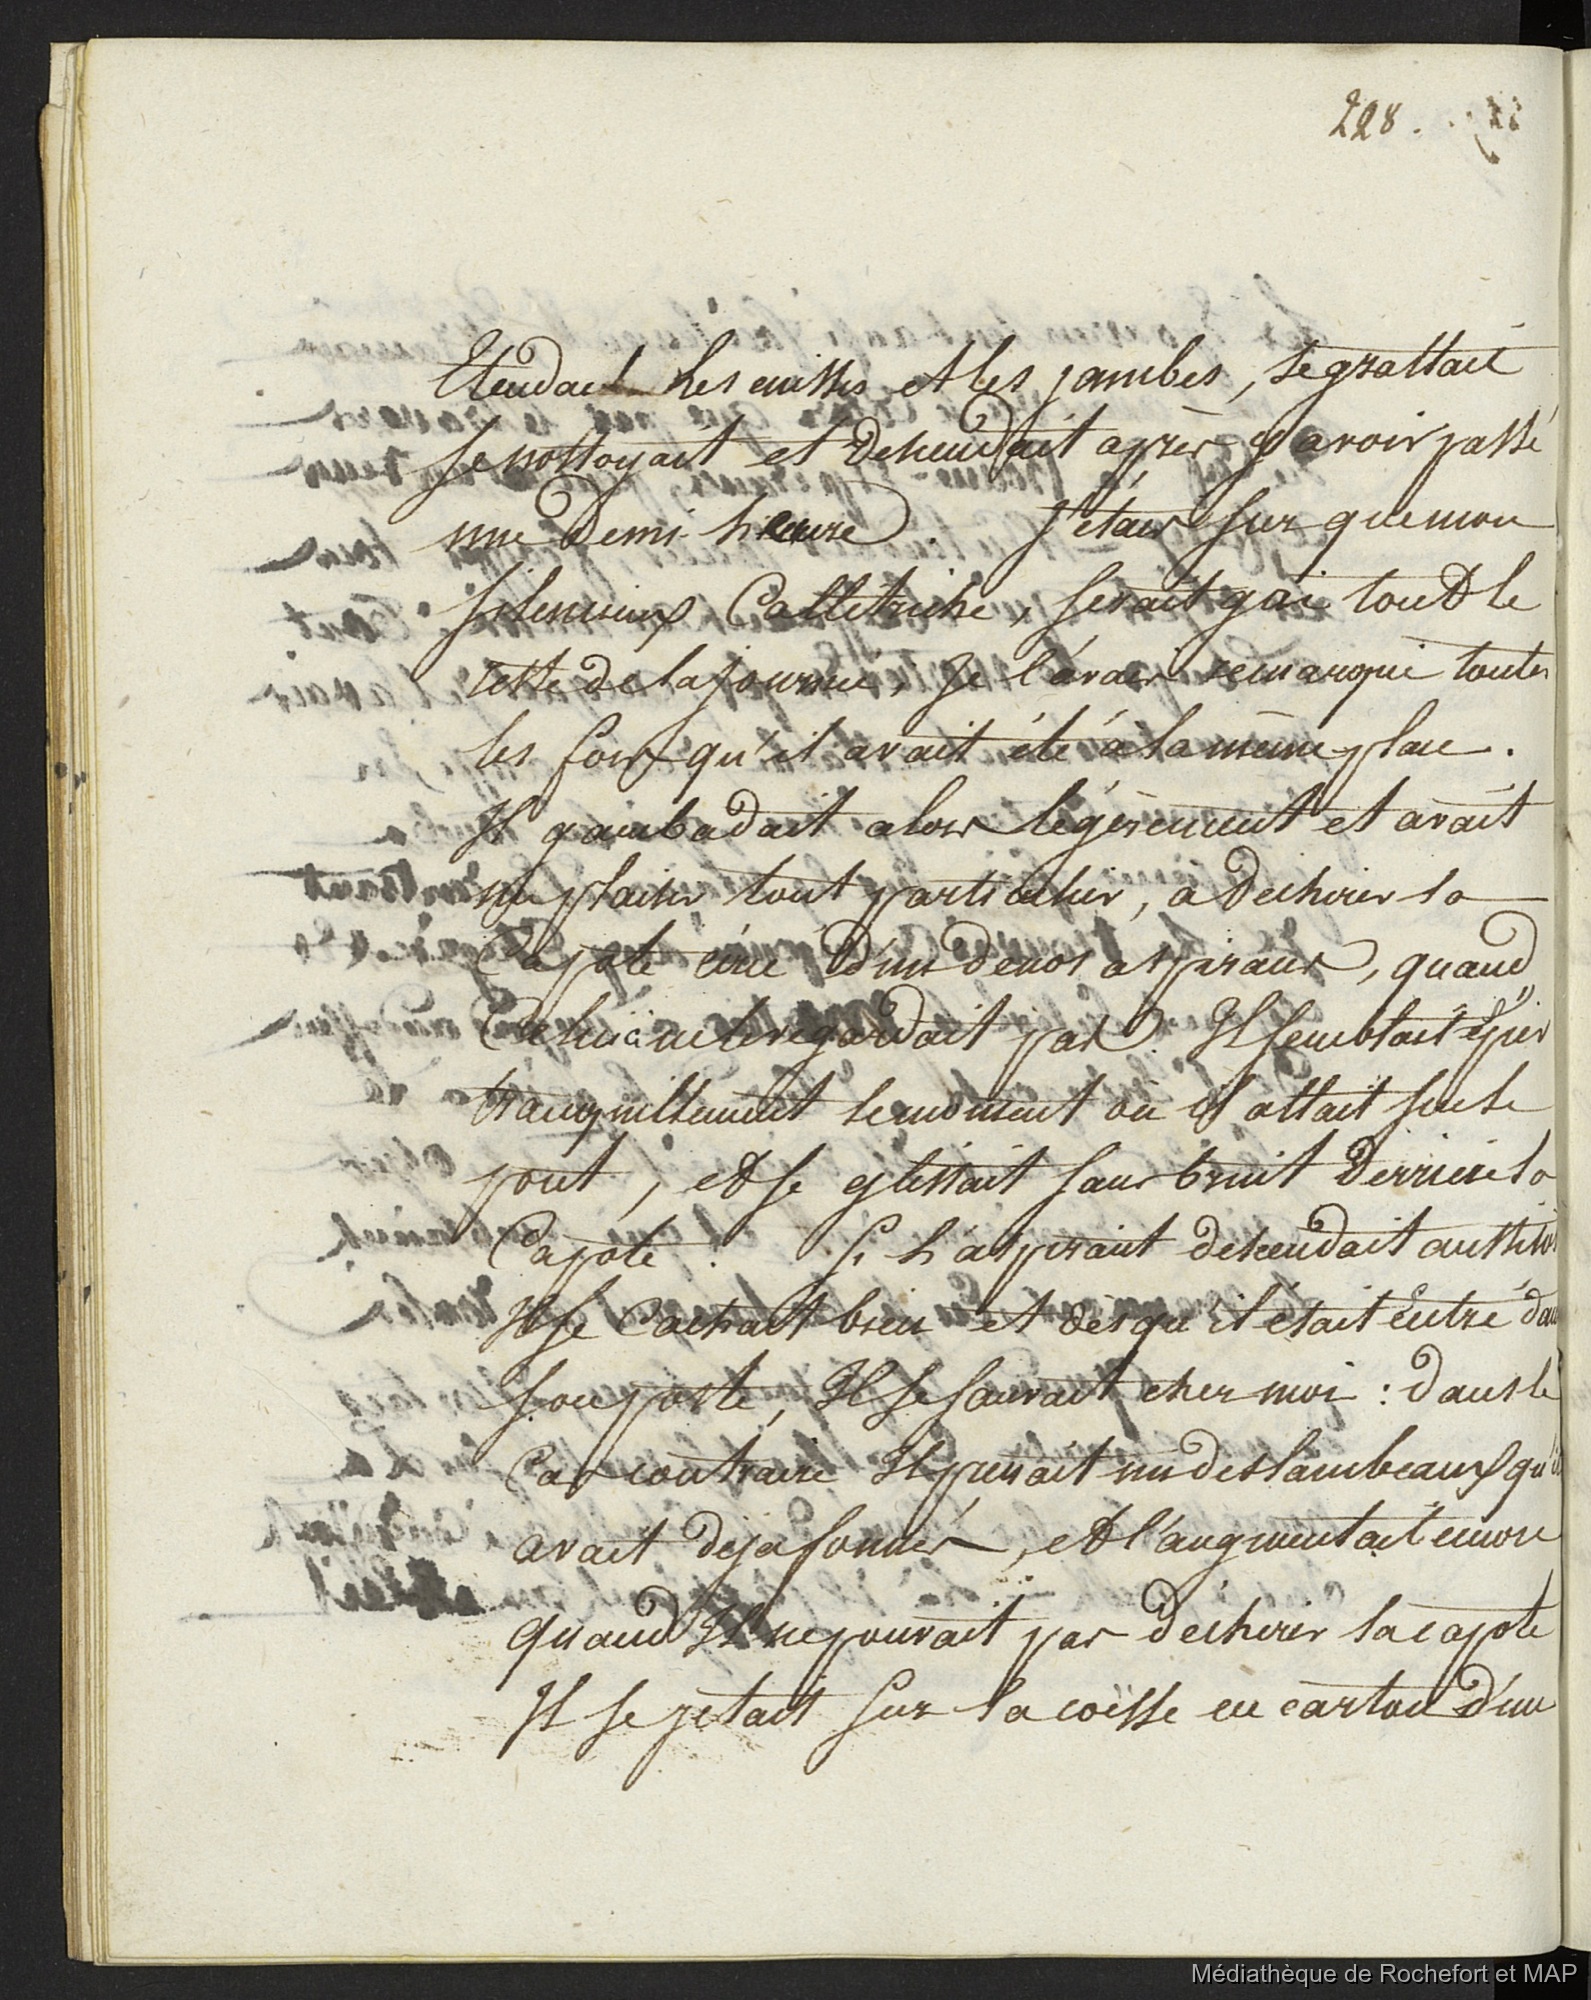 228.
Etendait les cuisses et les jambes, se grattait
se nettoyait et descendait après y avoir passé
une demi heure. J'étais sur que mon
silencieux Callitriche, serait gai tout le
reste de la journée, Je l'avais remarqué toutes
les fois qu'il avait été à la même place.
Il gambadait alors légèrement et avait
un plaisir tout particulier, a dechirer la
Capote cirée d'un de nos aspirans, quand
Celui ci ne le regardait pas. Il semblait épier
tranquillement le moment où il allait sur le
pont, et se glissait sans bruit derriere la
Capote. Si l'aspirant descendait aussitôt
Il se Cachait bien et dès qu'il était entré dans
son poste, Il se sauvait chez moi : dans le
Cas contraire Il prenait un des lambeaux qu'il
avait déja formés, et l'augmentait encore
quand Il ne pouvait pas déchirer la capote
Il se jetait sur la coësse en carton d'un
Médiathèque de Rochefort et MAP